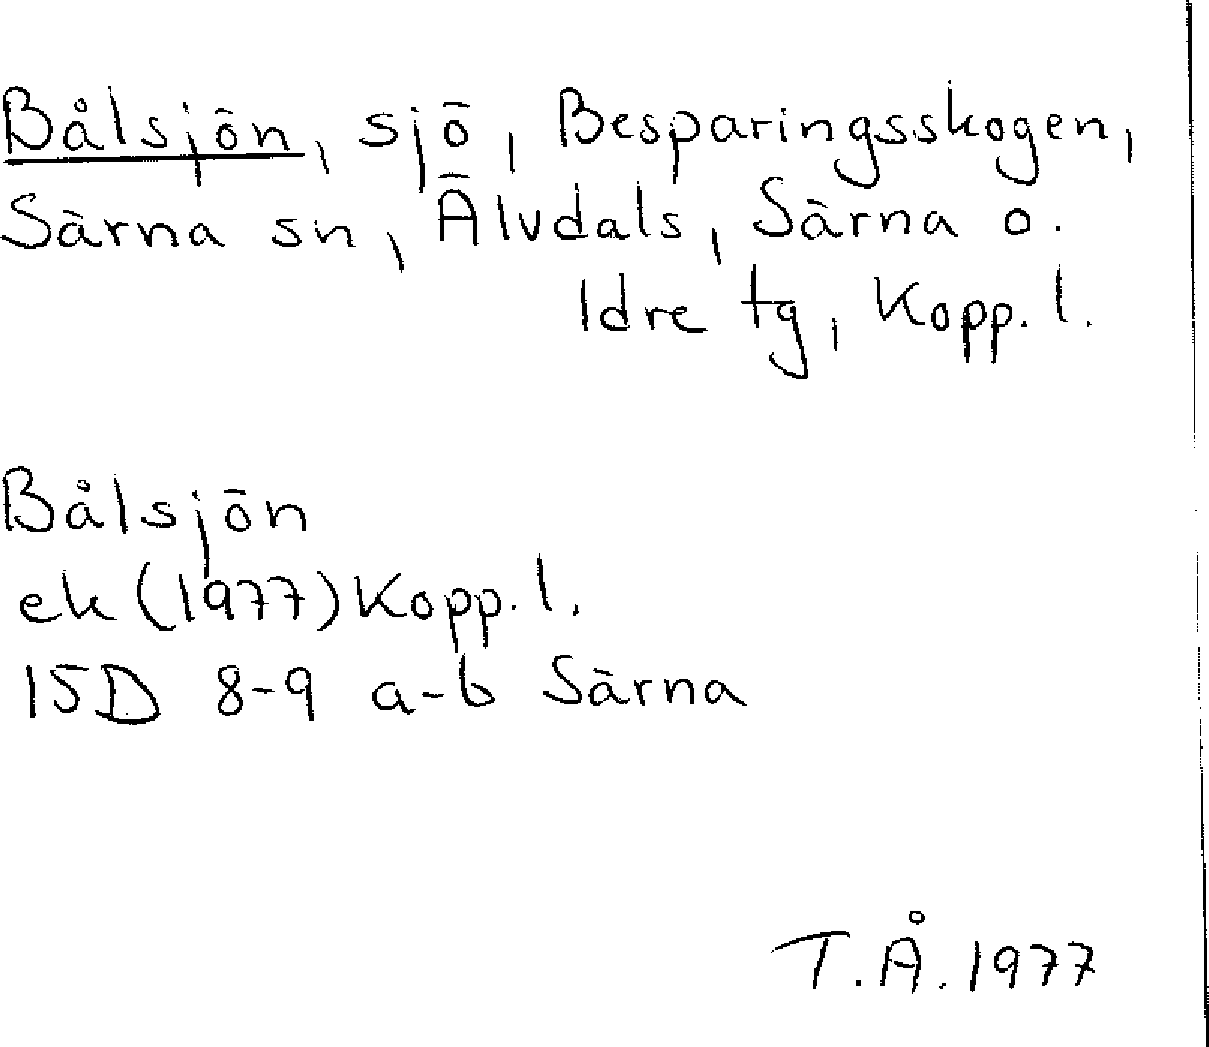 Bålsjön, sjö, Besparingsskogen,
Särna sn, Älvdals, Särna o.
Idre tg, Kopp. l.
Bålsjön
ek (1977) Kopp. l.
15D 8-9 a-b Särna
T.Å. 1977